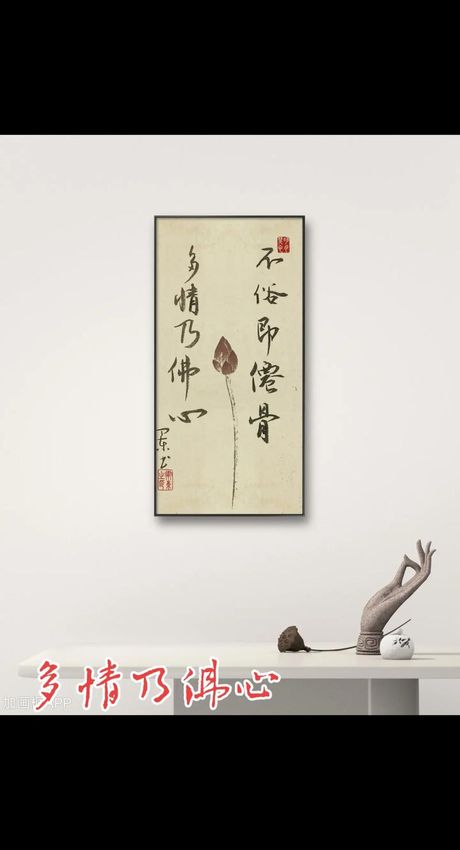 不俗即僊骨
多情乃佛心
多情乃佛心
加画框APP